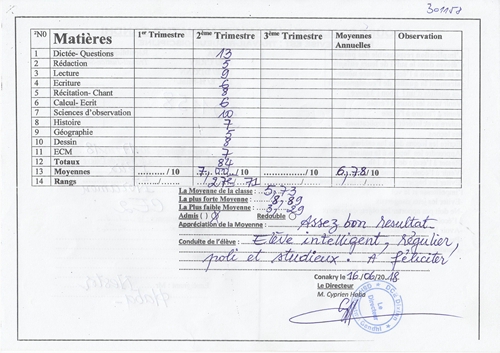 301158
N0 Matières 1er Trimestre 2ème Trimestre 3ème Trimestre Moyennes Annuelles Observation
1 Dictée- Questions 13
2 Rédaction 5
3 Lecture 9
4 Ecriture 6
5 Récitation- Chant 8
6 Calcul- Ecrit 6
7 Sciences d'observation 10
8 Histoire 7
9 Géographie 5
10 Dessin 8
11 ECM 7
12 Totaux 84
13 Moyennes ........../ 10 7,00../ 10 ........../ 10 6,78/10
14 Rangs 27e 71
La Moyenne de la classe : 5,73
La plus forte Moyenne : 8,89
La plus faible Moyenne : 3,29
Admis ( ) Redouble
Appréciation de la Moyenne : Assez bon resultat
Conduite de l'élève : Elève intelligent, régulier,
poli et studieux. A féliciter
Conakry le 16/06/2018
Le Directeur
M. Cyprien Haba
Le Directeur